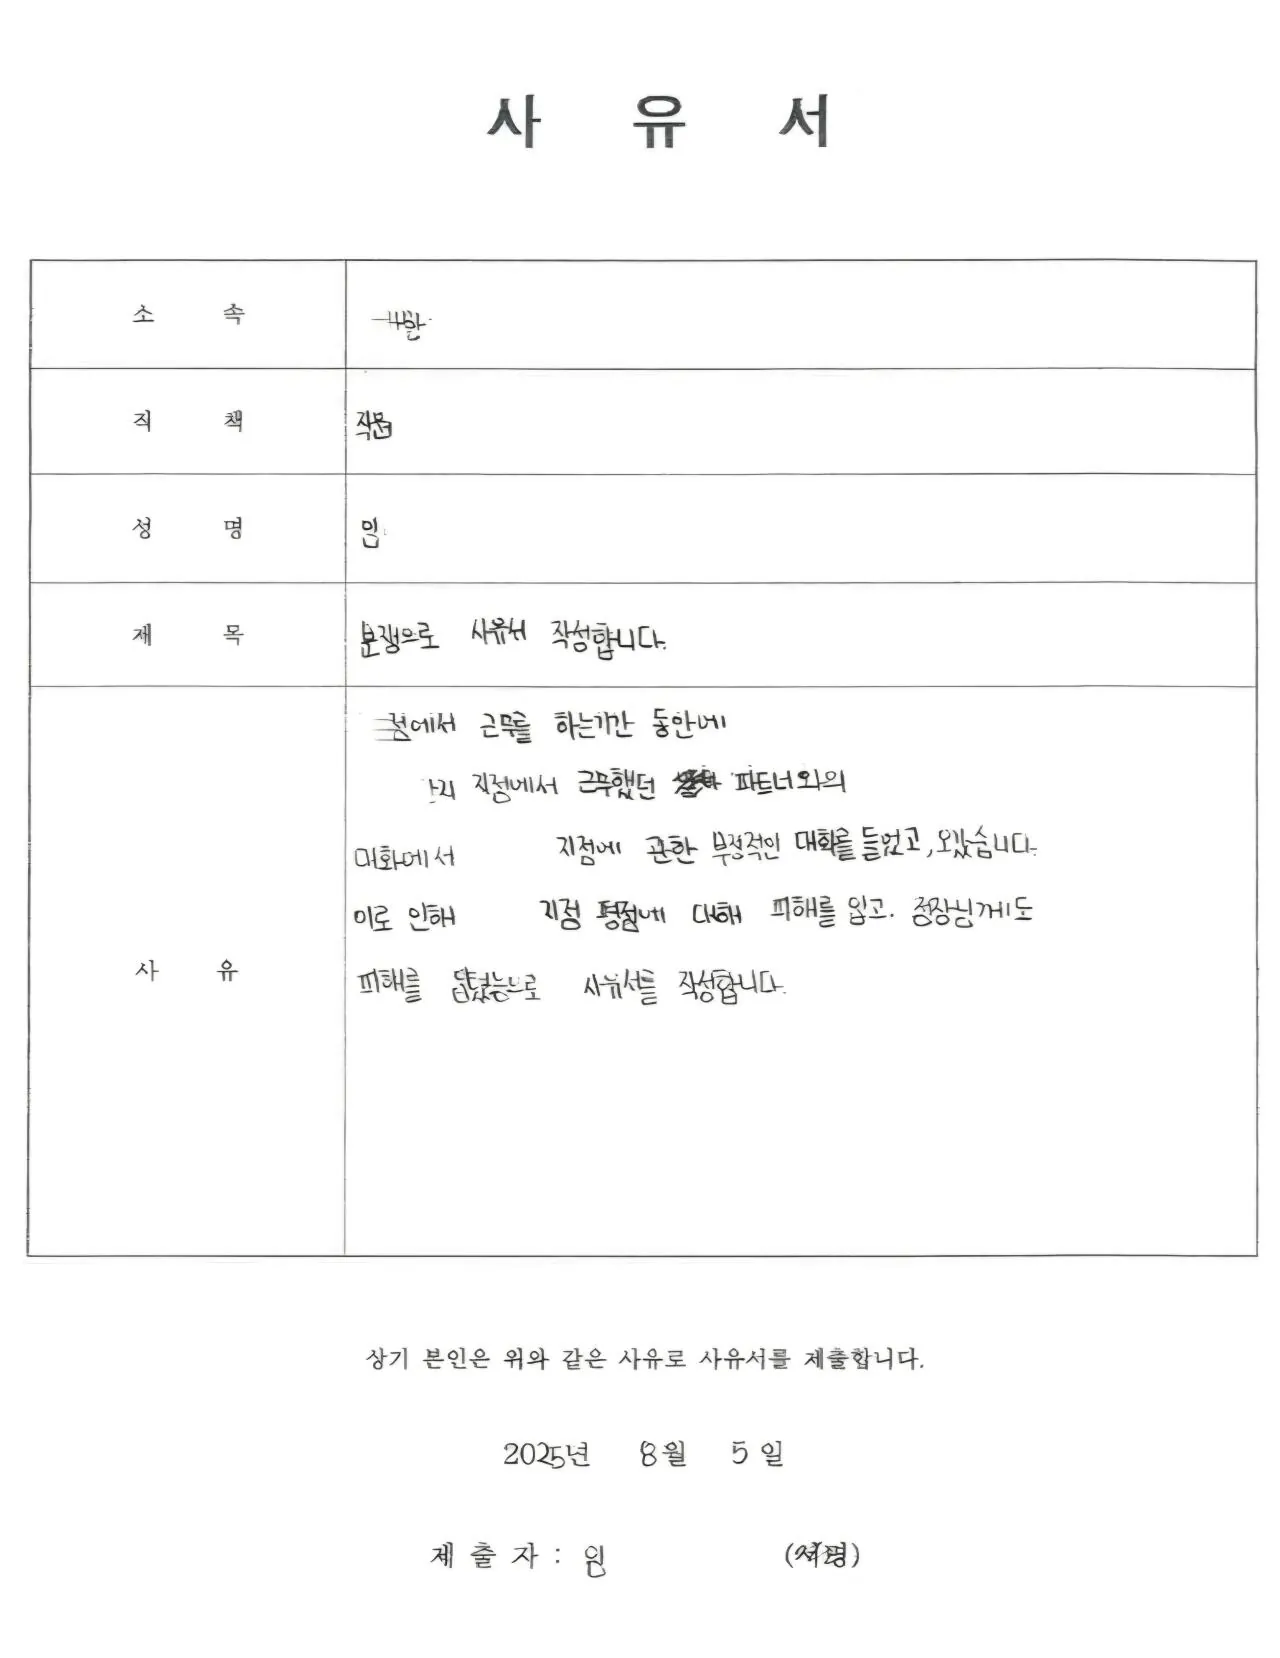 사 유 서
소 속
직 책
성 명 임
제 목 분쟁으로 사유서 작성합니다.
점에서 근무를 하는기간 동안에
지점에서 근무했던 파트너와의
대화에서 지점에 관한 부정적인 대화를 들었고, 왔습니다.
이로 인해 지점 평점에 대해 피해를 입고. 점장님께도
사 유
피해를 사유서를 작성합니다.
상기 본인은 위와 같은 사유로 사유서를 제출합니다.
2025년 8월 5일
제 출 자 : 임 (서명)